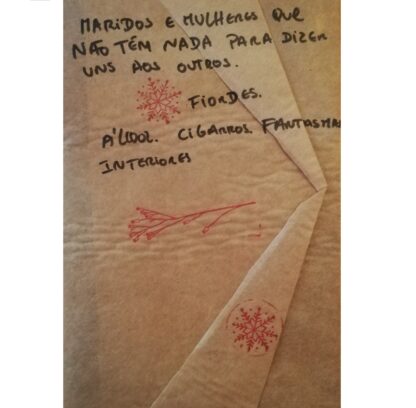 MARIDOS E MULHERES QUE
NÃO TÊM NADA PARA DIZER
UNS AOS OUTROS.
FIORDES.
ÁLCOOL. CIGARROS. FANTASMAS
INTERIORES